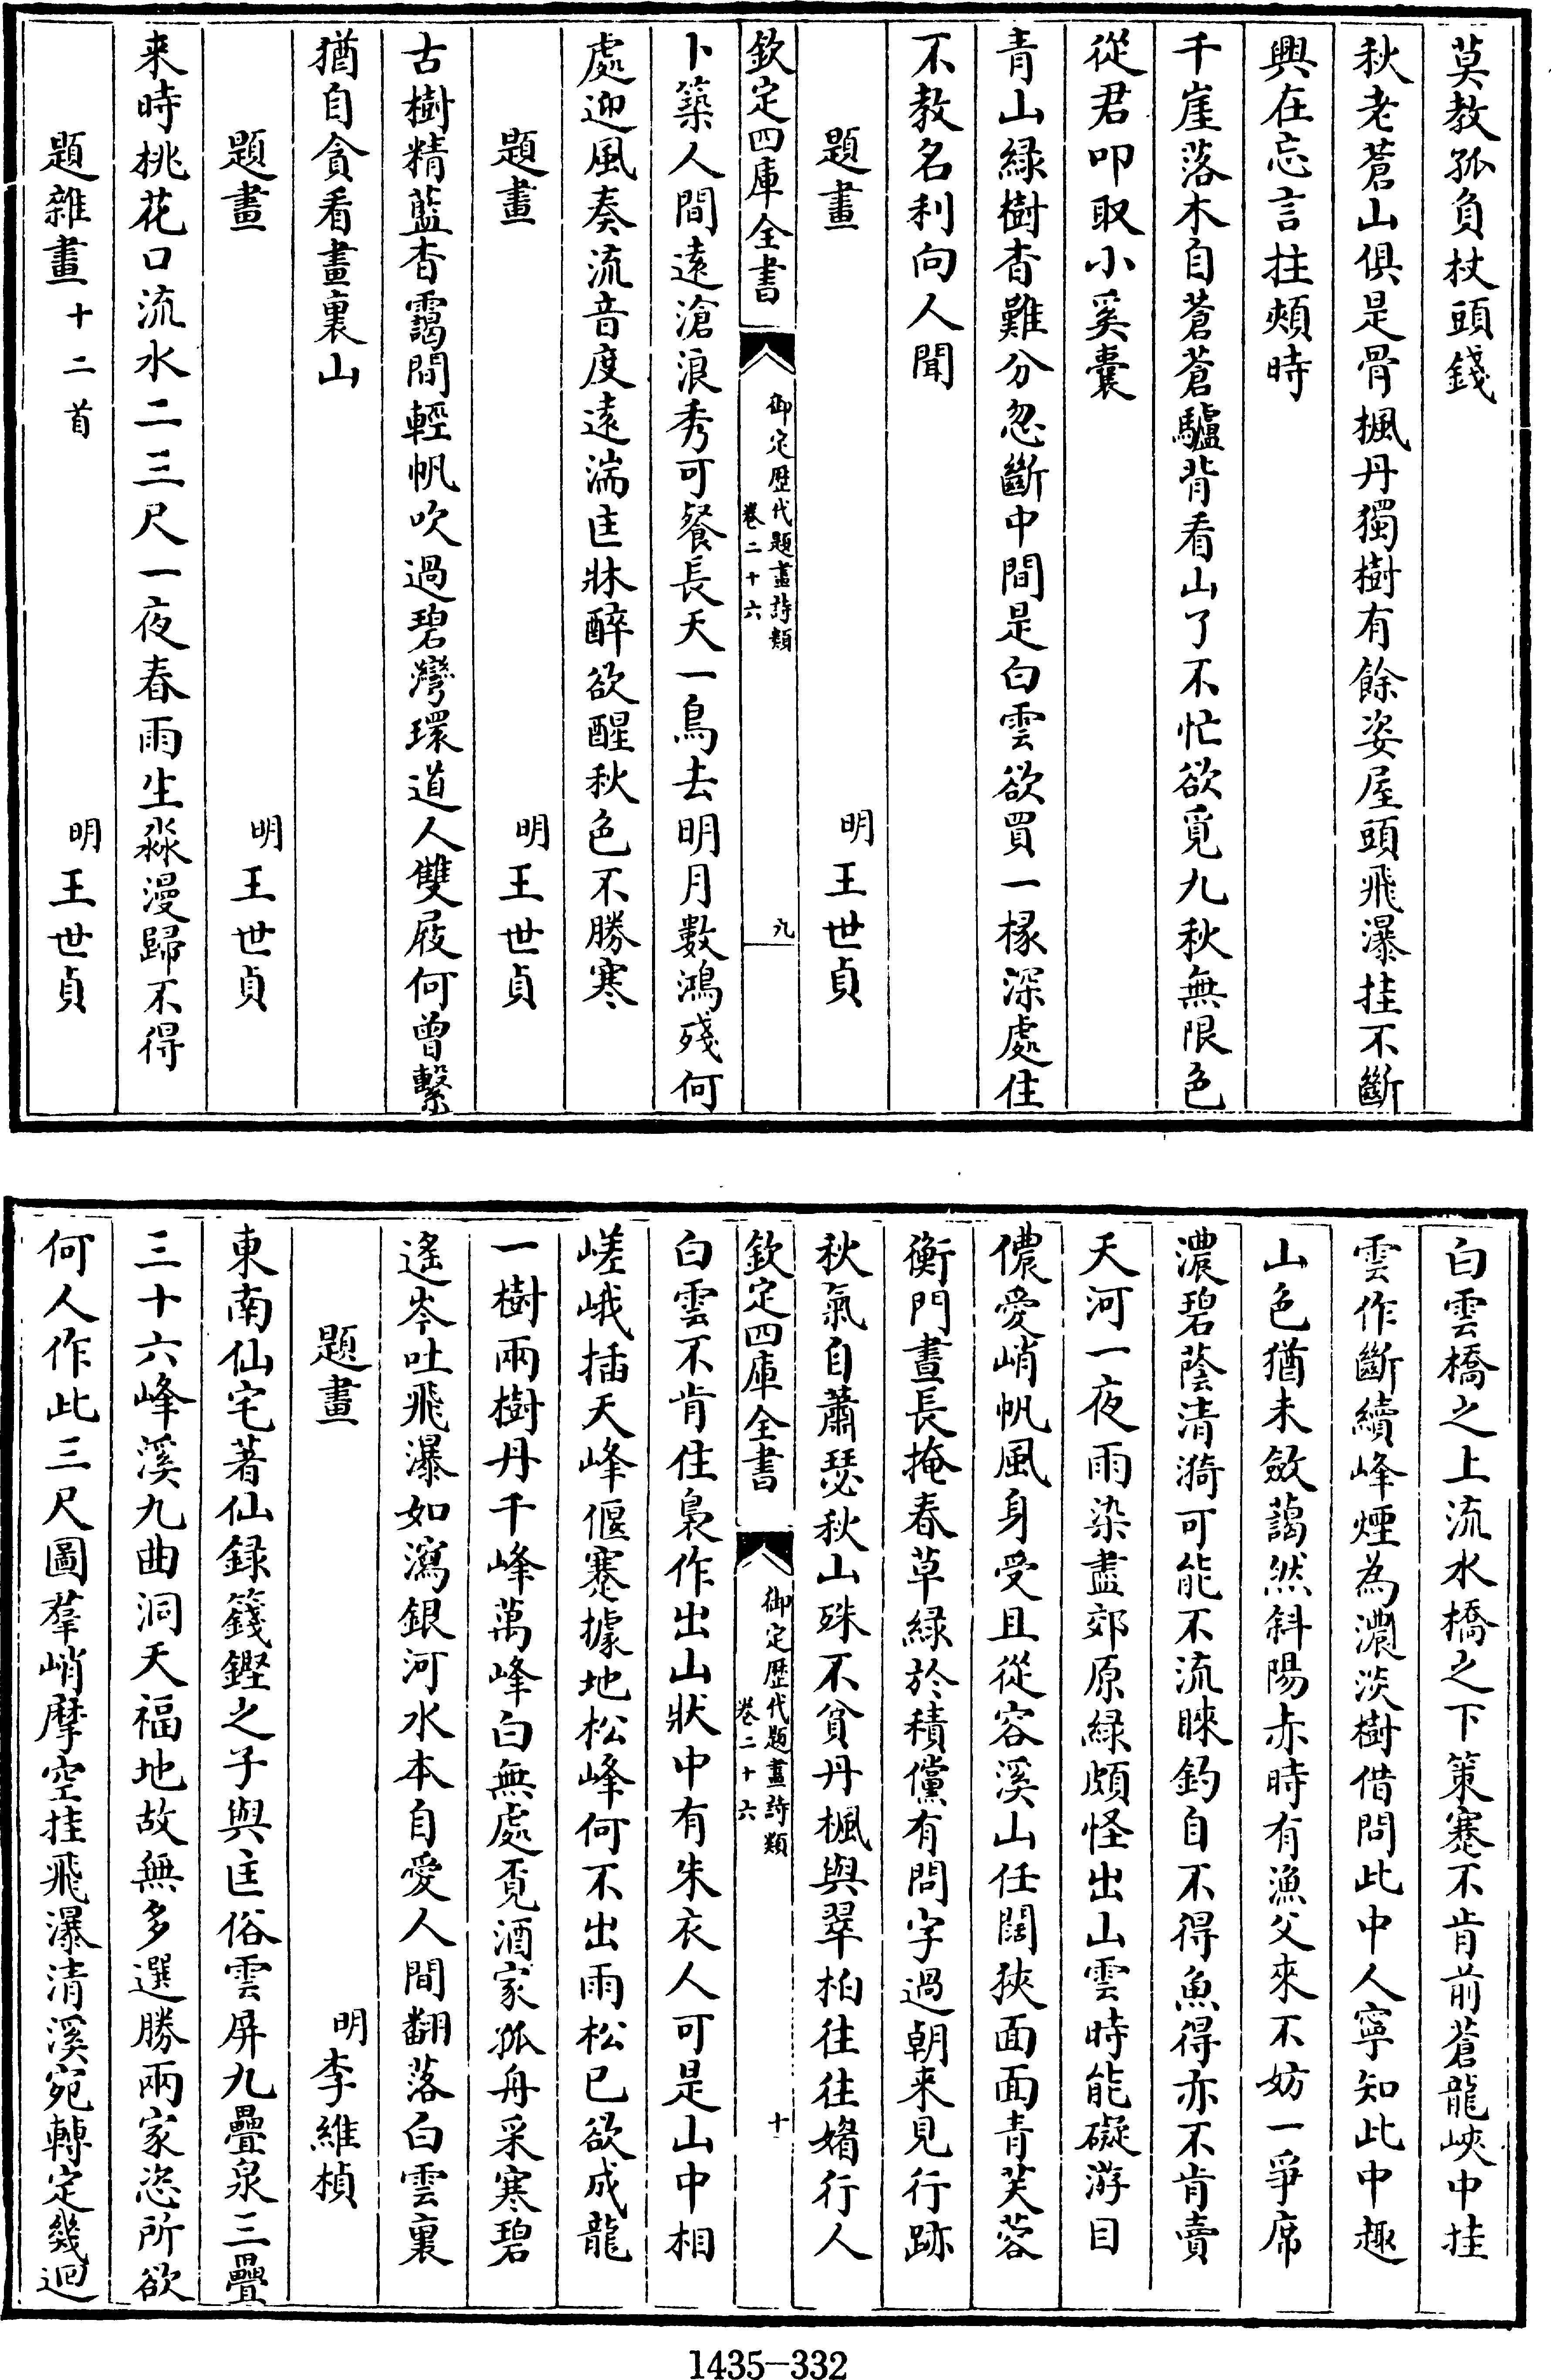 莫教孤負杖頭錢
秋老蒼山俱是骨楓丹獨樹有餘姿屋頭飛瀑挂不斷
興在忘言拄頰時
千崖落木自蒼蒼驢背看山了不忙欲覓九秋無限色
從君叩取小奚囊
青山綠樹杳難分忽斷中間是白雲欲買一椽深處住
不教名利向人聞
題畫 明王世貞
欽定四庫全書 御定歷代題畫詩類 卷二十六 九
卜築人間遠滄浪秀可餐長天一鳥去明月數鴻殘何
處迎風奏流音度遠湍匡牀醉欲醒秋色不勝寒
題畫 明王世貞
古樹精藍杳靄間輕帆吹過碧灣環道人雙屐何曾繫
猶自貪看畫裏山
題畫 明王世貞
来時桃花口流水二三尺一夜春雨生淼漫歸不得
題雜畫十二首 明王世貞
白雲橋之上流水橋之下策蹇不肯前蒼龍峽中挂
雲作斷續峰煙為濃淡樹借問此中人寧知此中趣
山色猶未斂藹然斜陽赤時有漁父來不妨一爭席
濃碧蔭清漪可能不流睞釣自不得魚得亦不肯賣
天河一夜雨染盡郊原綠頗怪出山雲時能礙游目
儂愛峭帆風身受且從容溪山任闊狹面面青芙蓉
衡門晝長掩春草綠於積儻有問字過朝来見行跡
秋氣自蕭瑟秋山殊不貧丹楓與翠柏往往媚行人
欽定四庫全書 御定歷代題畫詩類 卷二十六 十
白雲不肯住裊作出山狀中有朱衣人可是山中相
嵯峨插天峰偃蹇據地松峰何不出雨松已欲成龍
一樹兩樹丹千峰萬峰白無處覓酒家孤舟采寒碧
遙岑吐飛瀑如瀉銀河水本自愛人間翻落白雲裏
題畫 明李維楨
東南仙宅著仙錄籛鏗之子與匡俗雲屏九疊泉三疊
三十六峰溪九曲洞天福地故無多選勝兩家恣所欲
何人作此三尺圖羣峭摩空挂飛瀑清溪宛轉定幾迴
1435-332